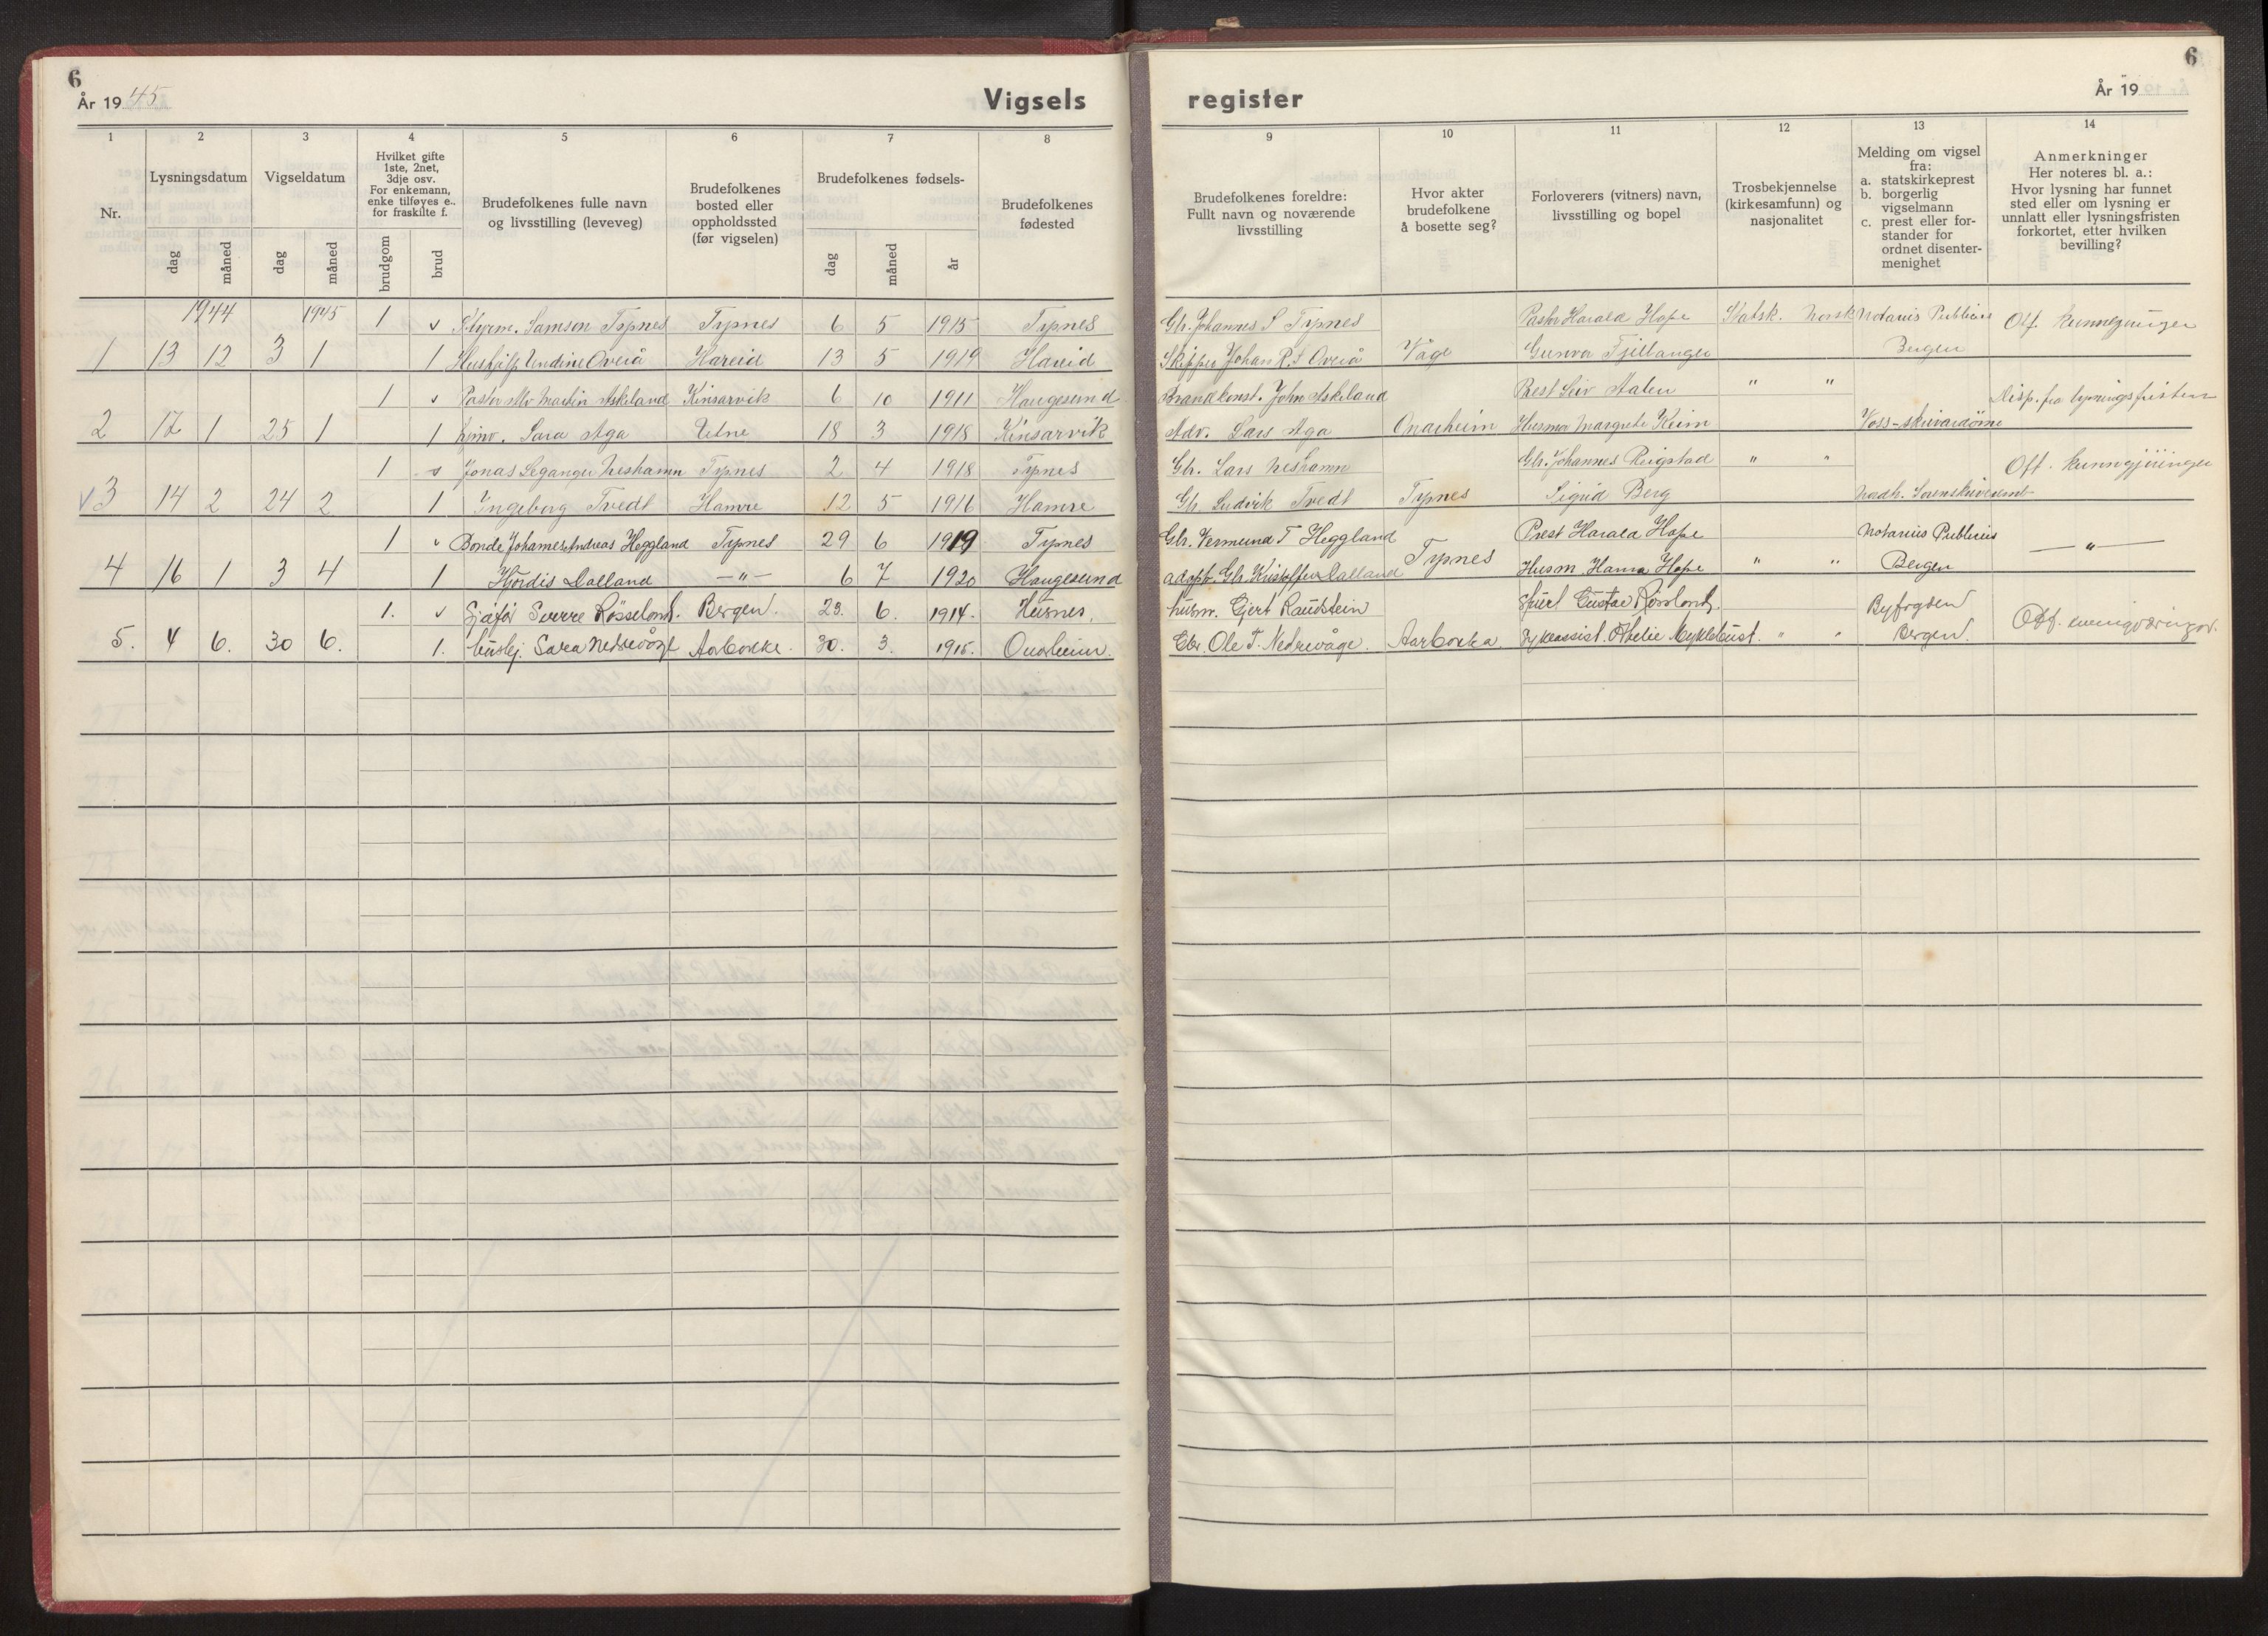 6
År 1945
Vigsels
1 2 3 4 5 6 7 8
Nr.
Lysningsdatum
dag måned
Vigseldatum
dag måned
Hvilket gifte
1ste, 2net,
3dje osv.
For enkemann,
enke tilføyes e..
for fraskilte f.
brudgom brud
Brudefolkenes fulle navn
og livsstilling (leveveg)
Brudefolkenes
bosted eller
oppholdssted
(før vigselen)
Brudefolkenes fødsels-
dag måned år
Brudefolkenes
fødested
1944 1945 1 v Styrm. Samson Tysnes Tysnes 6 5 1915 Tysnes
1 13 12 3 1 1 Hushjelp Undine Overå Hareid 13 5 1919 Hareid
1 v Pastor Alv Martin Askeland Kinsarvik 6 10 1911 Haugesund
2 17 1 25 1 1 Sara Aga Utne 18 3 1918 Kinsarvik
1 v Jonas Leganger Neshamn Tysnes 2 4 1918 Tysnes
v 3 14 2 24 2 1 Ingeborg Tvedt Hamre 12 5 1916 Hamre
1 v Bonde Johannes Andreas Heggland Tysnes 29 6 1919 Tysnes
4 16 1 3 4 1 Hjördis Dalland —"— 6 7 1920 Haugesund
1. v Sverre Røsseland. Bergen. 23. 6. 1914. Husnes.
5. 4 6. 30 6. 1. Sara Nedrevåge Aarbakke. 30. 3. 1915. Onarheim.
6
register
År 19
9 10 11 12 13 14
Brudefolkenes foreldre:
Fullt navn og noværende
livsstilling
Hvor akter
brudefolkene
å bosette seg?
Forloverers (vitners) navn,
livsstilling og bopel
Trosbekjennelse
(kirkesamfunn) og
nasjonalitet
Melding om vigsel
fra:
a. statskirkeprest
b. borgerlig
vigselmann
c. prest eller for-
stander for
ordnet disenter-
menighet
Anmerkninger
Her noteres bl. a.:
Hvor lysning har funnet
sted eller om lysning er
unnlatt eller lysningsfristen
forkortet, etter hvilken
bevilling?
Gbr. Johannes S Tysnes Pastor Harald Hope Statsk. Norsk Notarius Publicus Off. kunngjringer
Skipper Johan R. S Overå Våge Gunvor Fjellanger Bergen
Brandkonst. John Askeland Prest Leiv Aalen " " Disp. fra lysningsfristen
Adv. Lars Aga Onarheim Husmor Margrete Keim Voss-skrivardøme
Gbr. Lars Neshamn Gbr. Johannes Reigstad " " Off. kunngjöringer
Gbr. Ludvik Tvedt Tysnes Sigrid Berg Nordh. Sorenskriveremb.
Gbr. Vermund T Heggland Tysnes Prest Harald Hope Notarius Publicus —"—
adopt. Gbr. Kristoffer Dalland Husm. Hanna Hope " " Bergen
husm. Gjert Raudstein Gustav Røssland. Byfogden Off. kunngjøringer.
Gbr. Ole T. Nedrevåge. Aarbakka. Sykeassist. Myklebust. " " Bergen.